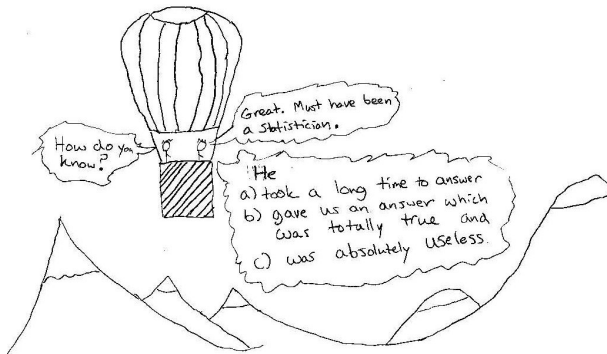 Great. Must have been
a statistician.
How do you
know?
He
a) took a long time to answer
b) gave us an answer which
was totally true and
c) was absolutely useless.